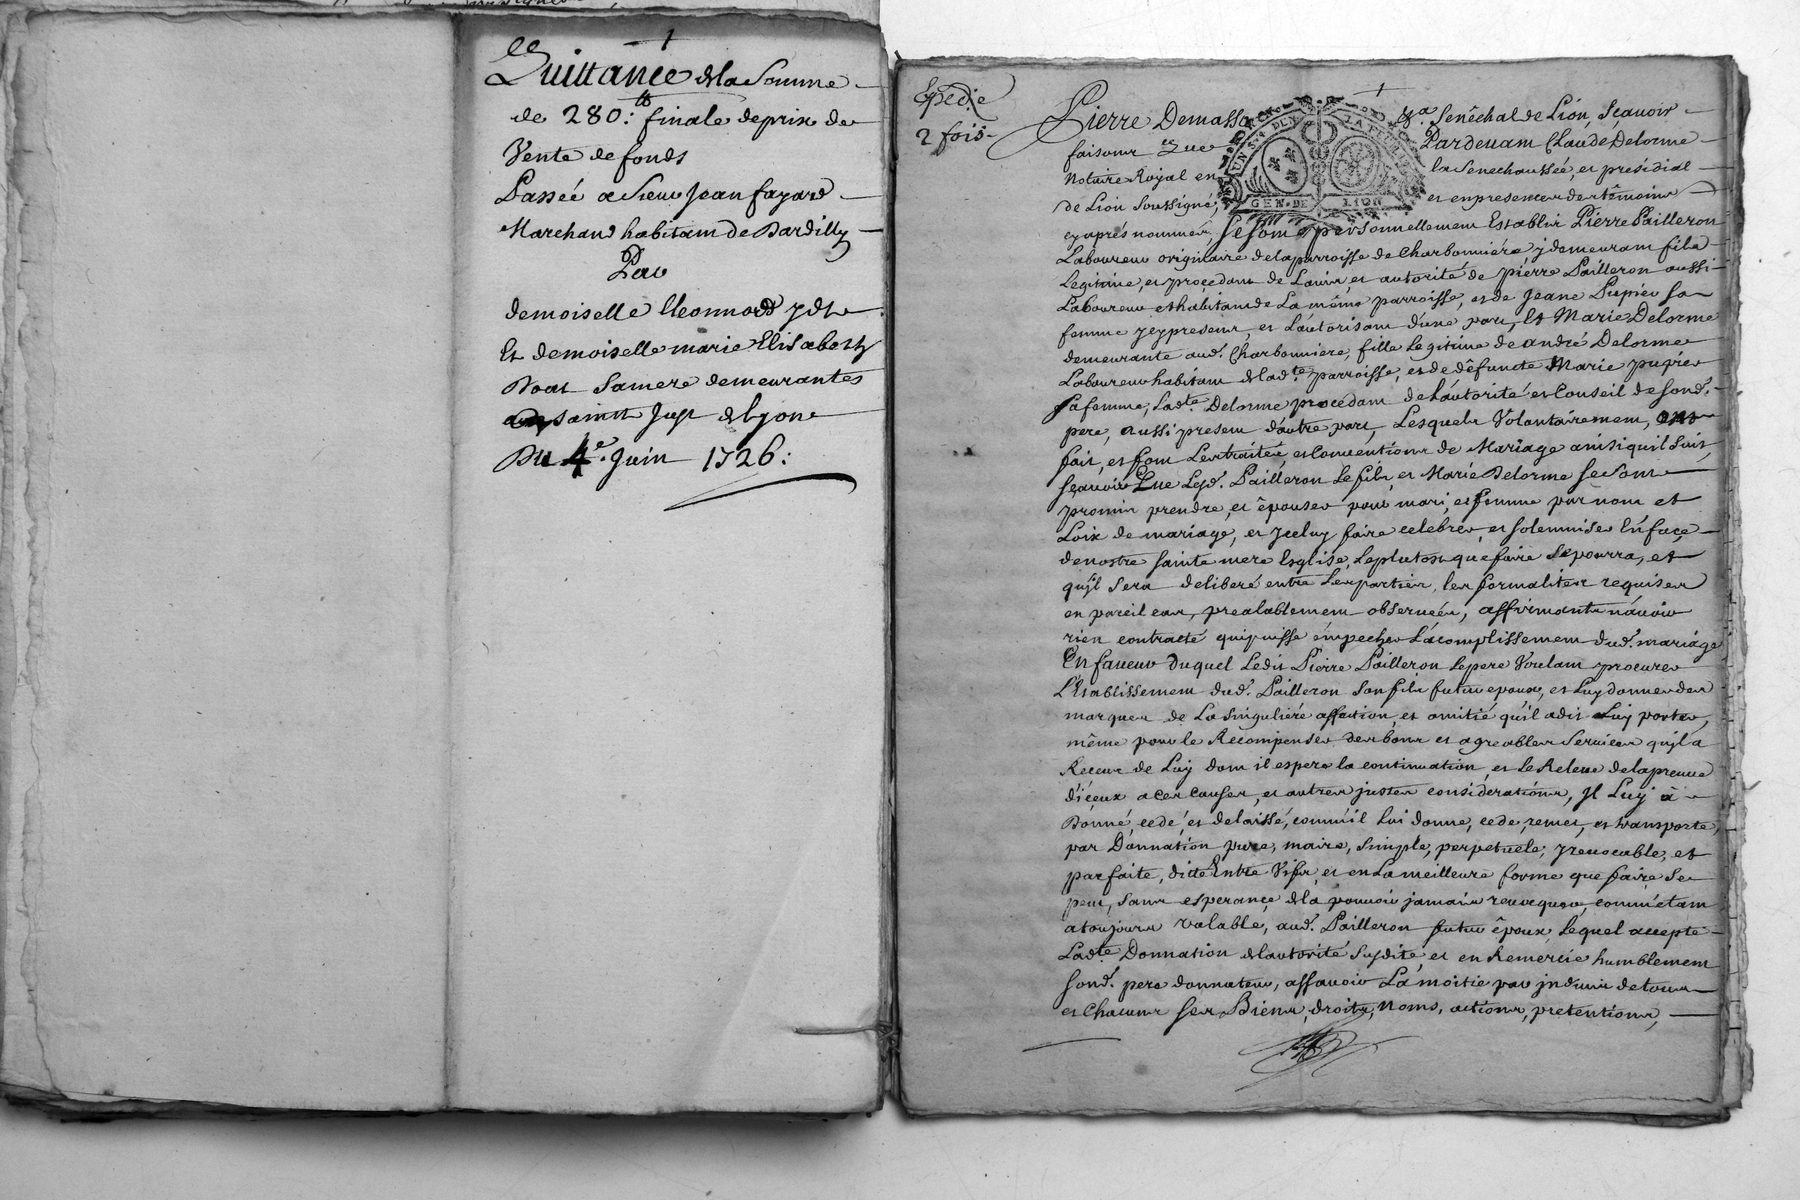 Quittance de la Somme
de 280:ᵗᵗ finale de prix de
Vente de fonds
Passée a Sieur Jean fayard
Marchand habitant de Dardilly
Par
demoiselle Eleonnord
Et demoiselle marie Elisabeth
Sa mere demeurantes
a Saint Just de Lyon
Du 4ᵉ. Juin 1726:
Expedie
2 fois
Pierre Demasso Senêchal de Lion, Sçavoir
faisons Que Pardevant Claude Delorme
Notaire Royal en la Senechaussée, et presidial
de Lion Soussigné, et en presence des têmoins
cy après nommés, Se Sont personnellement Establis Pierre Pailleron
Laboureur originaire de la parroisse de Charbonniére, y demeurant fils
Legitime, et procedant de L'avis, et autorité de pierre Pailleron aussi
Laboureur et habitant de La même parroisse, et de Jeane Pupier sa
femme y cy present, et L'autorisant d'une part, Et Marie Delorme
demeurante aud. Charbonniére, fille Legitime de andré Delorme
Laboureur habitant de lad.te parroisse, et de dêfuncte Marie pupier
sa femme, Lad.te Delorme procedant de L'autorité et Conseil de sond.
pere, aussi present d'autre part, Lesquels Volontairement, ont
fait, et font Les traités, et Conventions de Mariage ainsi qu'il suit,
sçavoir Que Led. Pailleron le fils, et Marie Delorme se sont
promis prendre, et êpouser pour mari, et femme par nom et
Loix de mariage, et Jceluy faire celebrer, et solemniser En face
de nostre sainte mere Esglise, le plutost que faire se pourra, et
qu'il sera deliberé entre Les parties, les formalites requises
en pareil cas, prealablement observées, affirmants n'avoir
rien contracté qui puisse êmpecher L'acomplissement dud. mariage
En faveur duquel Ledit Pierre Pailleron le pere Voulant procurer
L'Establissement dud. Pailleron son fils futur epoux, et Luy donner des
marques de La singuliére affection, et amitié qu'il a dit Luy porter,
même pour le Recompenser des bons et agreables services qu'il a
Receus de Luy dont il espere la continuation, et Le Releve de la preuve
d'iceux a ces causes, et autres justes considerations, Jl Luy à
Donné, cedé, et delaissé, comm'il Lui donne, cede, remet, et transporte,
par Donnation pure, maire, simple, perpetuele, yrevocable, et
parfaite, ditte Entre Vifs, et en La meilleure forme que faire se
peut, sans esperance de la pouvoir jamais revoquer, comm'êtant
a toujours valable, aud. Pailleron futur êpoux, lequel accepte
Lad.te Donnation de l'autorité susdite, et en Remercie humblement
sond. pere donnateur, assavoir La moitie par indivis de tous
et chacuns ses Biens, droits, noms, actions, pretentions,
GEN. DE LION